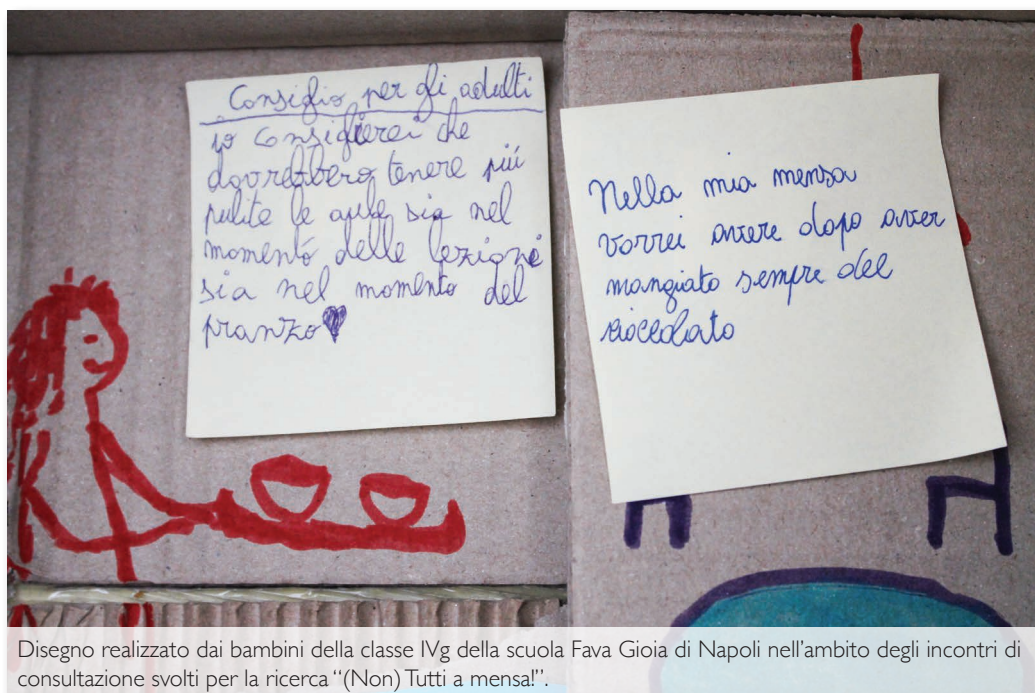 Consiglio per gli adulti
io consiglierei che
dovrebbero tenere più
pulite le aule sia nel
momento delle lezioni
sia nel momento del
pranzo
Nella mia mensa
vorrei avere dopo aver
mangiato sempre del
cioccolato
Disegno realizzato dai bambini della classe IVg della scuola Fava Gioia di Napoli nell'ambito degli incontri di
consultazione svolti per la ricerca “(Non) Tutti a mensa!”.